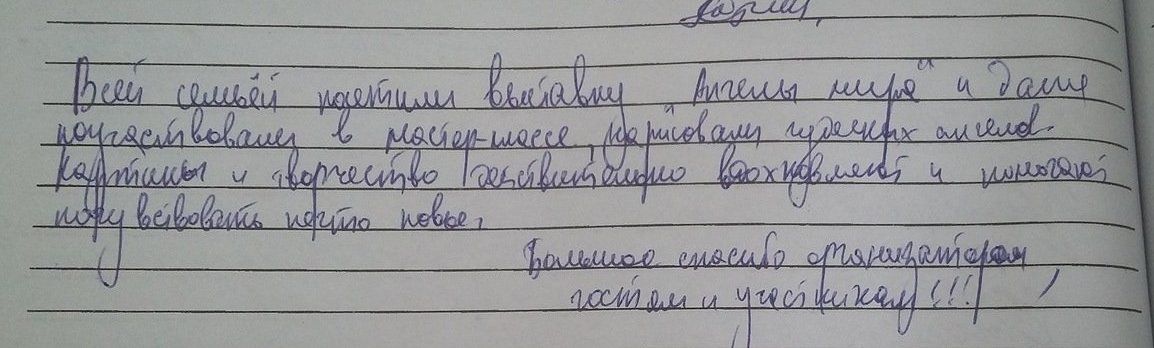 Всей семьёй посетили выставку "Ангелы мира" и даже
поучаствовали в мастер-классе, нарисовали чудесных ангелов.
Картины и творчество действительно вдохновляют и помогают
почувствовать нечто новое.
Большое спасибо организаторам
гостям и участникам!!!